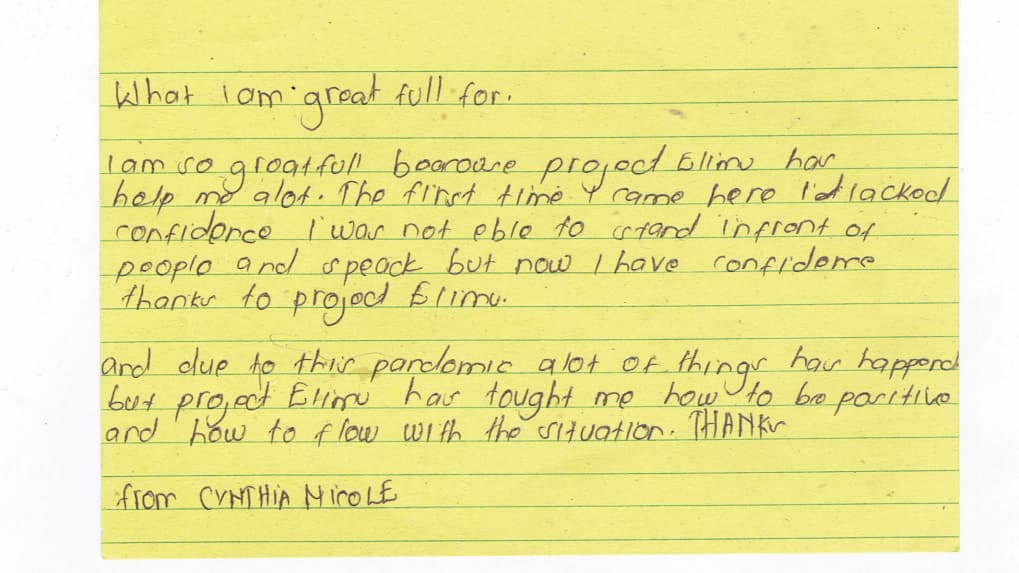 What i am great full for.
I am so greatfull because project Elimu has
help me alot. The first time I came here I lacked
confidence I was not eble to stand infront of
people and speack but now I have confidence
thanks to project Elimu.
and due to this pandemic alot of things has happend
but project Elimu has tought me how to be positive
and how to flow with the situation. THANKs
from CYNTHIA NicoLE